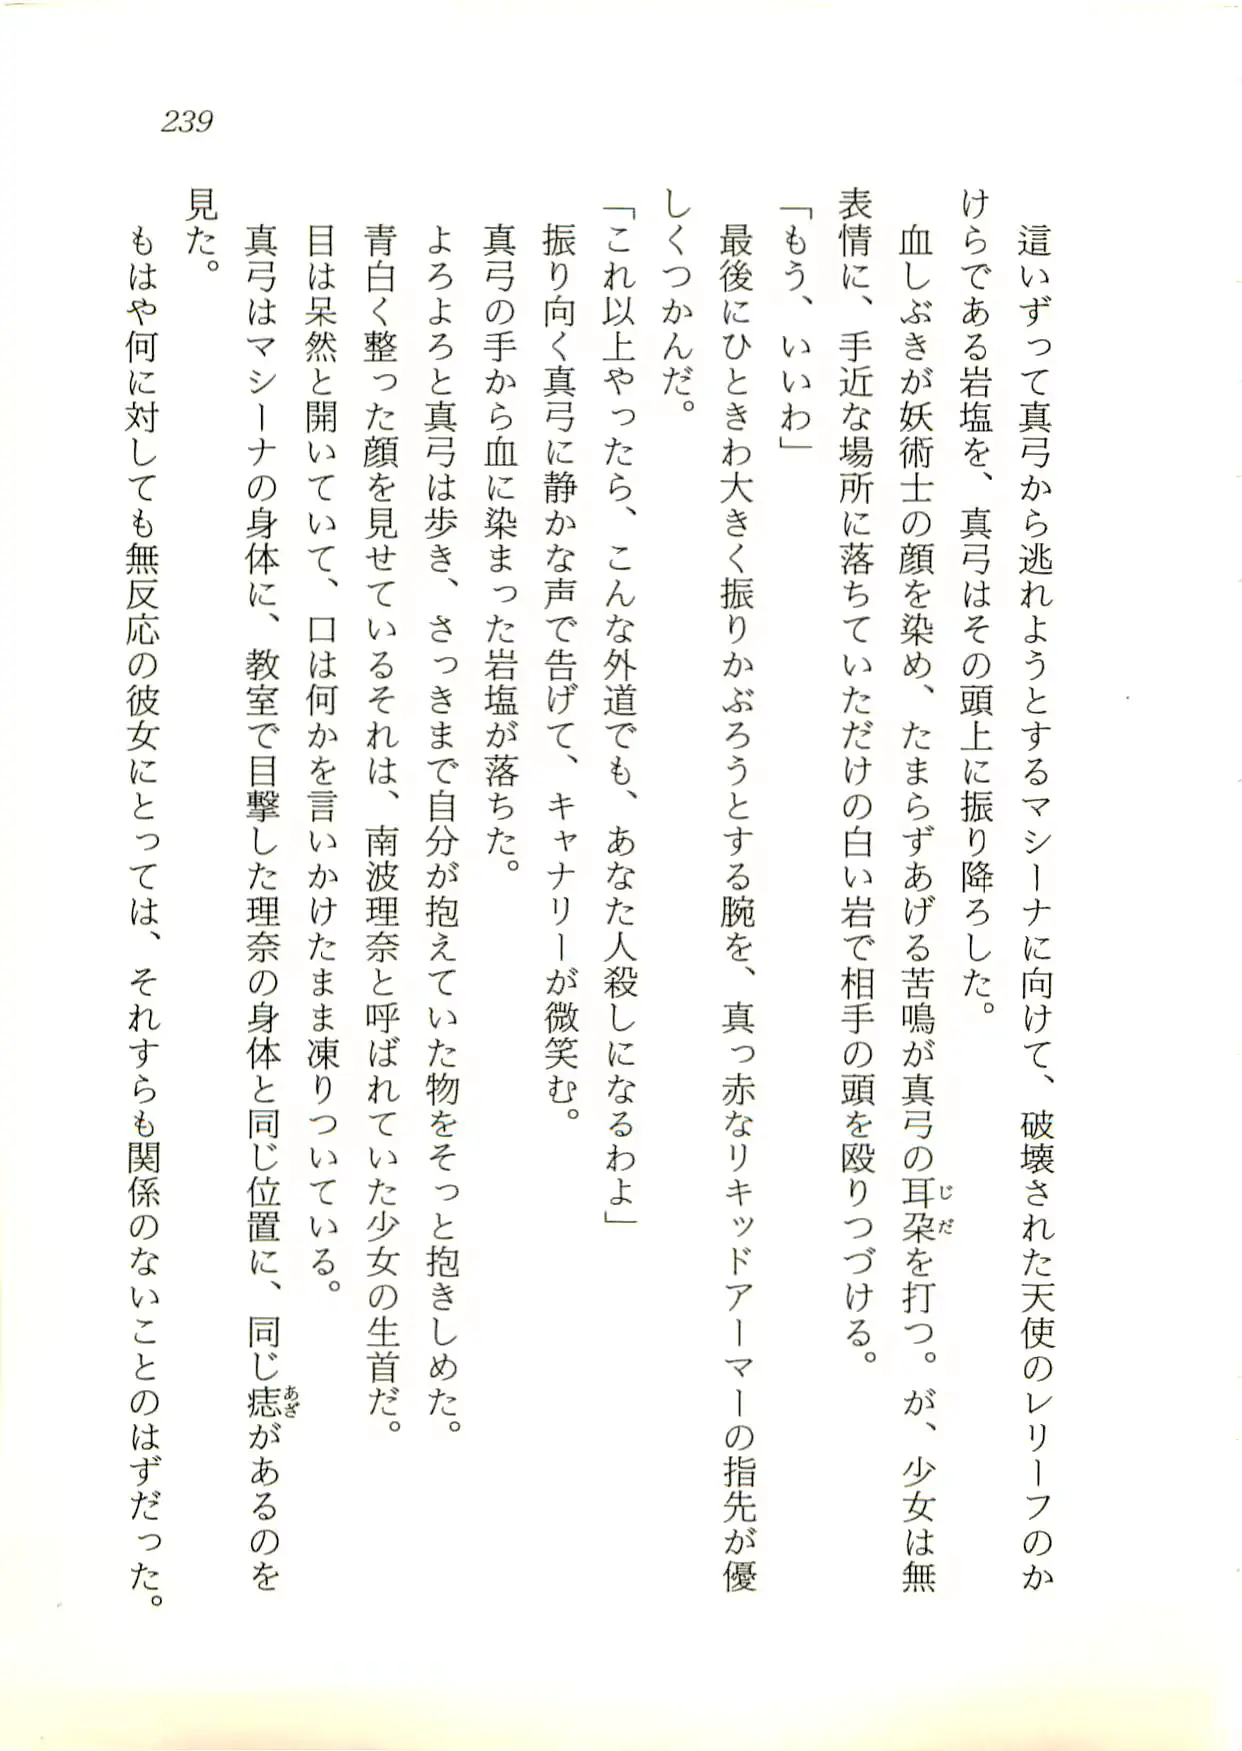 239
這いずって真弓から逃れようとするマシーナに向けて、破壊された天使のレリーフのか
けらである岩塩を、真弓はその頭上に振り降ろした。
血しぶきが妖術士の顔を染め、たまらずあげる苦鳴が真弓の耳朶を打つ。が、少女は無
表情に、手近な場所に落ちていただけの白い岩で相手の頭を殴りつづける。
「もう、いいわ」
最後にひときわ大きく振りかぶろうとする腕を、真っ赤なリキッドアーマーの指先が優
しくつかんだ。
「これ以上やったら、こんな外道でも、あなた人殺しになるわよ」
振り向く真弓に静かな声で告げて、キャナリーが微笑む。
真弓の手から血に染まった岩塩が落ちた。
よろよろと真弓は歩き、さっきまで自分が抱えていた物をそっと抱きしめた。
青白く整った顔を見せているそれは、南波理奈と呼ばれていた少女の生首だ。
目は呆然と開いていて、口は何かを言いかけたまま凍りついている。
真弓はマシーナの身体に、教室で目撃した理奈の身体と同じ位置に、同じ痣があるのを
見た。
もはや何に対しても無反応の彼女にとっては、それすらも関係のないことのはずだった。